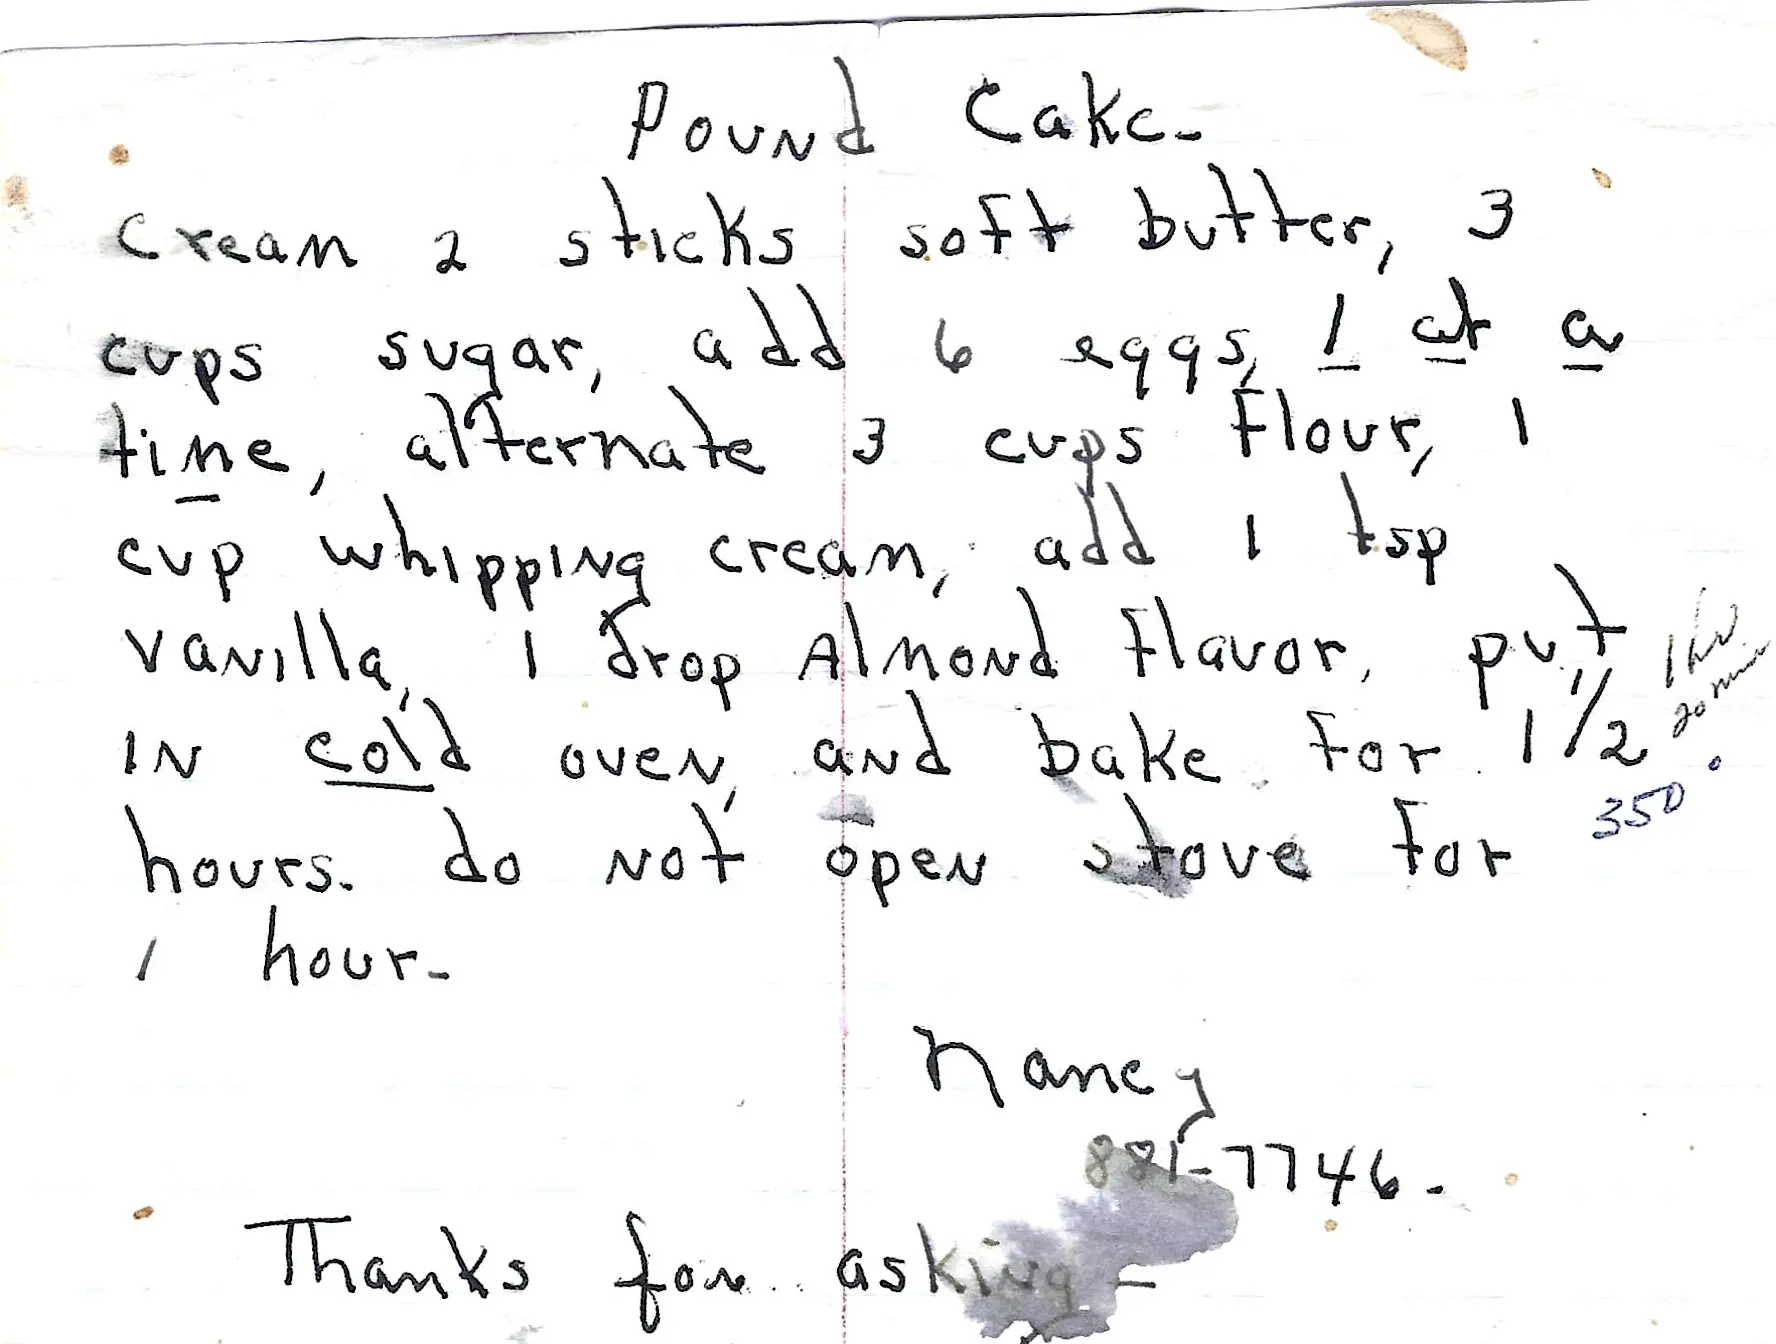 Pound Cake-
Cream 2 sticks soft butter, 3
cups sugar, add 6 eggs, 1 at a
time, alternate 3 cups flour, 1
cup whipping cream, add 1 tsp
vanilla, 1 drop Almond flavor, put
in cold oven, and bake for 1 1/2
1 hr
20 min
350°
hours. do not open stove for
1 hour-
Nancy
881-7746.
Thanks for asking-